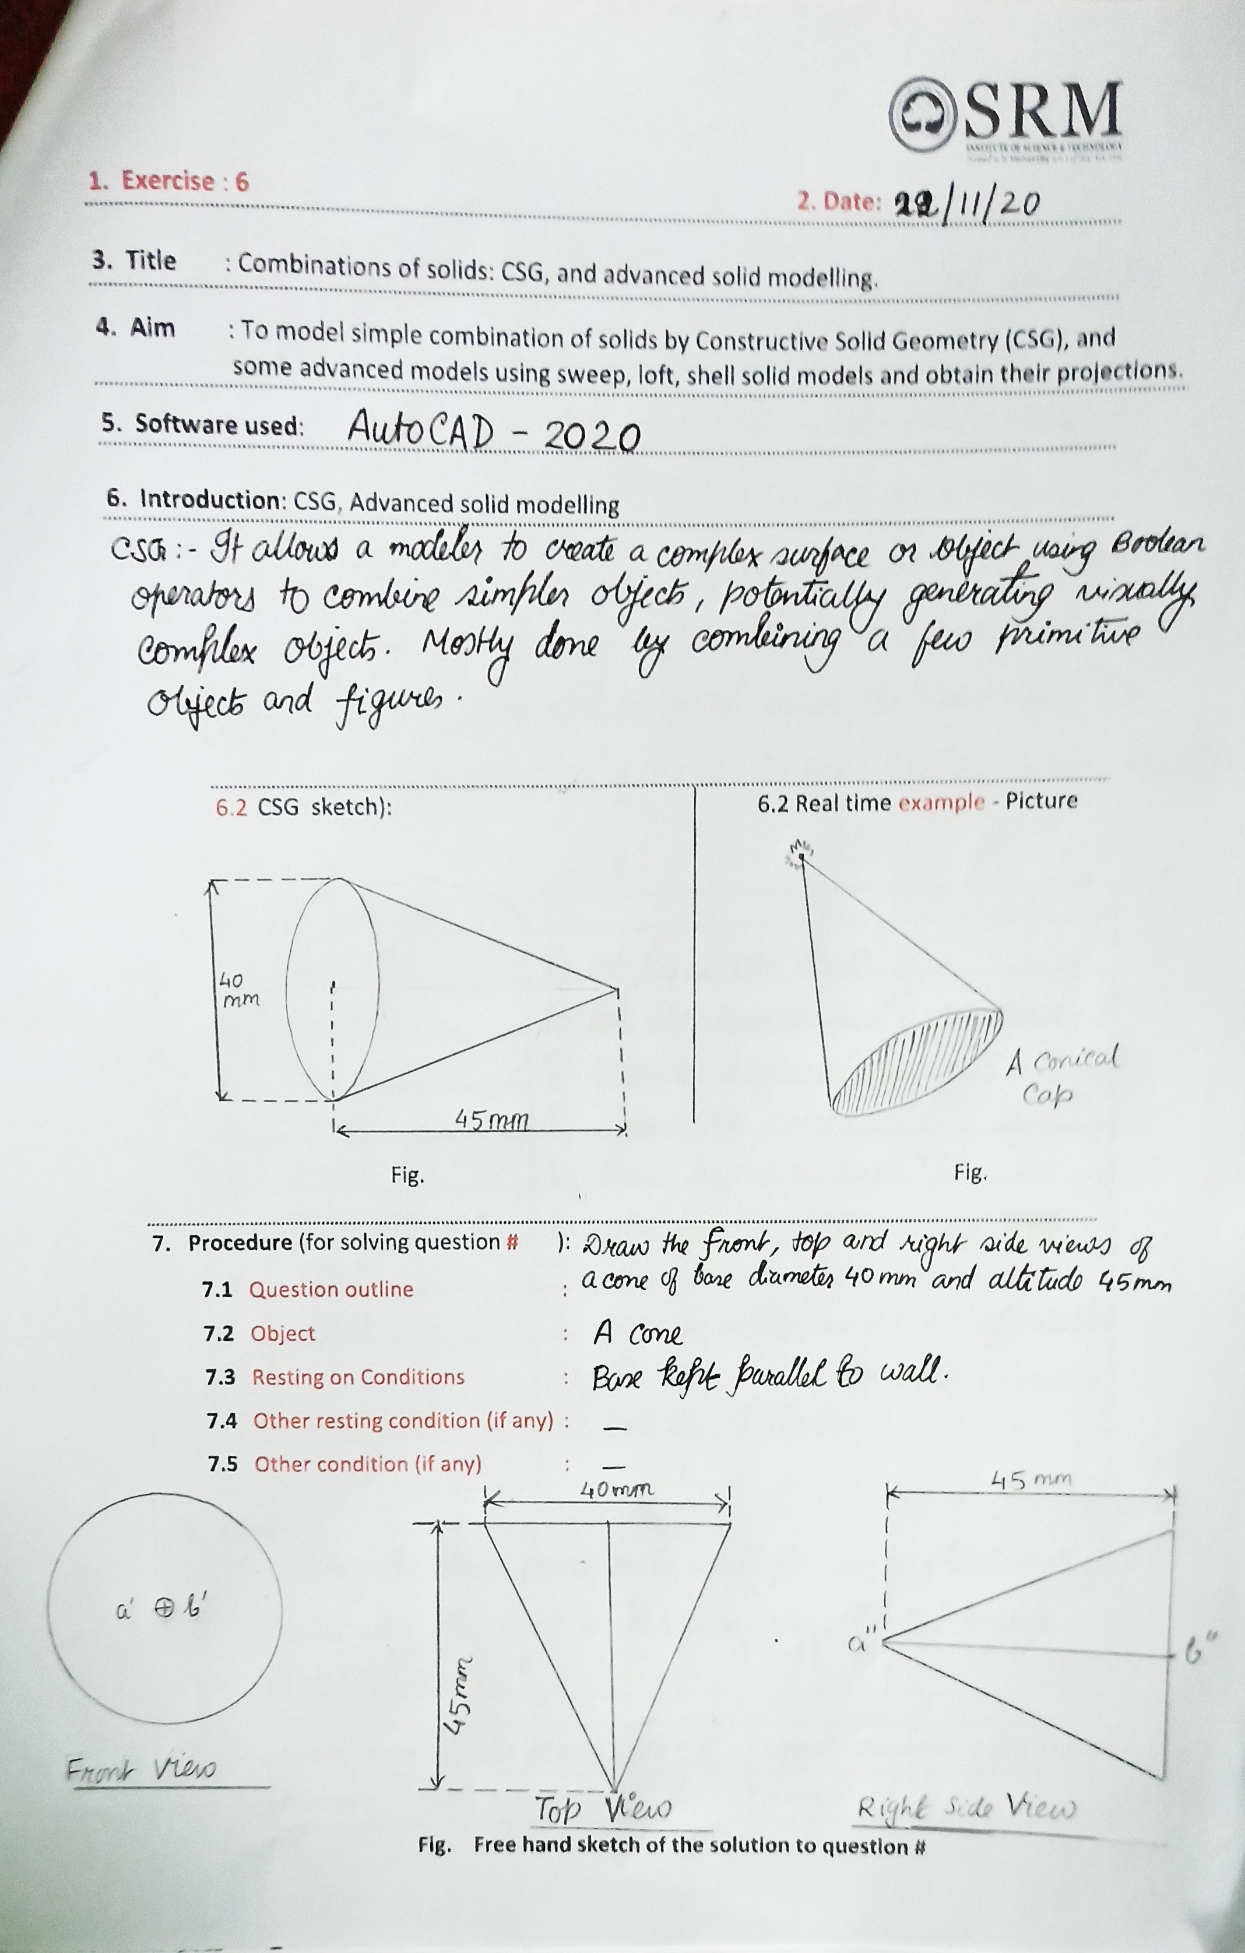 SRM
INSTITUTE OF SCIENCE & TECHNOLOGY
1. Exercise : 6
2. Date: 22/11/20
3. Title : Combinations of solids: CSG, and advanced solid modelling.
4. Aim : To model simple combination of solids by Constructive Solid Geometry (CSG), and
some advanced models using sweep, loft, shell solid models and obtain their projections.
5. Software used: AutoCAD - 2020
6. Introduction: CSG, Advanced solid modelling
CSG :- It allows a modeler to create a complex surface or object using Boolean
operators to combine simpler objects, potentially generating visually
complex objects. Mostly done by combining a few primitive
objects and figures.
6.2 CSG sketch):
6.2 Real time example - Picture
40
mm
45mm
A Conical
Cap
Fig.
Fig.
7. Procedure (for solving question # ): Draw the front, top and right side views of
a cone of base diameter 40mm and altitude 45mm
7.1 Question outline :
7.2 Object : A cone
7.3 Resting on Conditions : Base kept parallel to wall.
7.4 Other resting condition (if any) : —
7.5 Other condition (if any) : —
40mm
45 mm
a' ⊕ b'
45mm
a" b"
Front View
Top View
Right Side View
Fig. Free hand sketch of the solution to question #